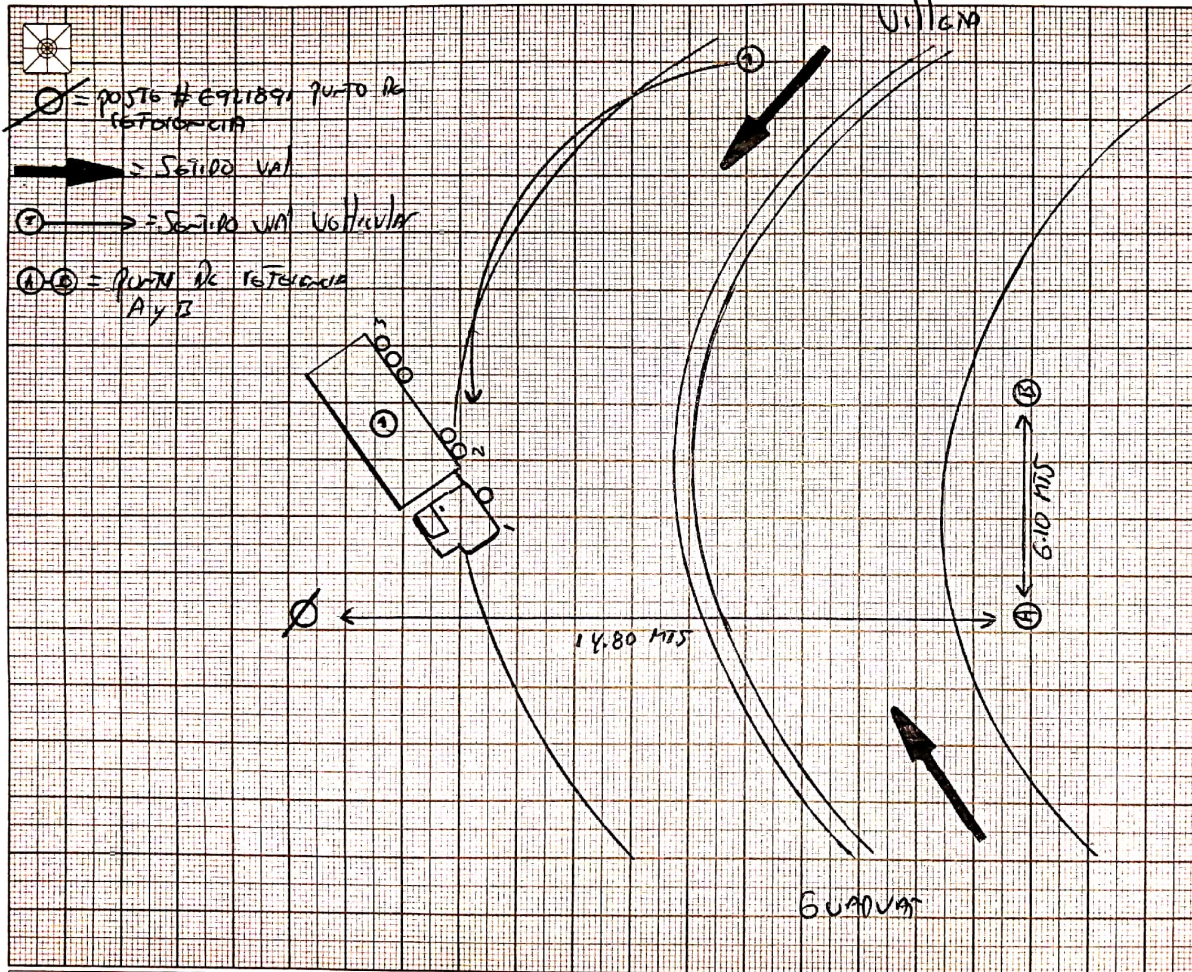 Villeta
Ø = poste # E921891 punto de
referencia
= Sentido vial
① = Sentido vial vehicular
Ⓐ-Ⓑ = punto de referencia
A y B
3
①
2
1
①
Ⓑ
6.10 MTS
Ⓐ
Ø
14.80 MTS
GUADUAS